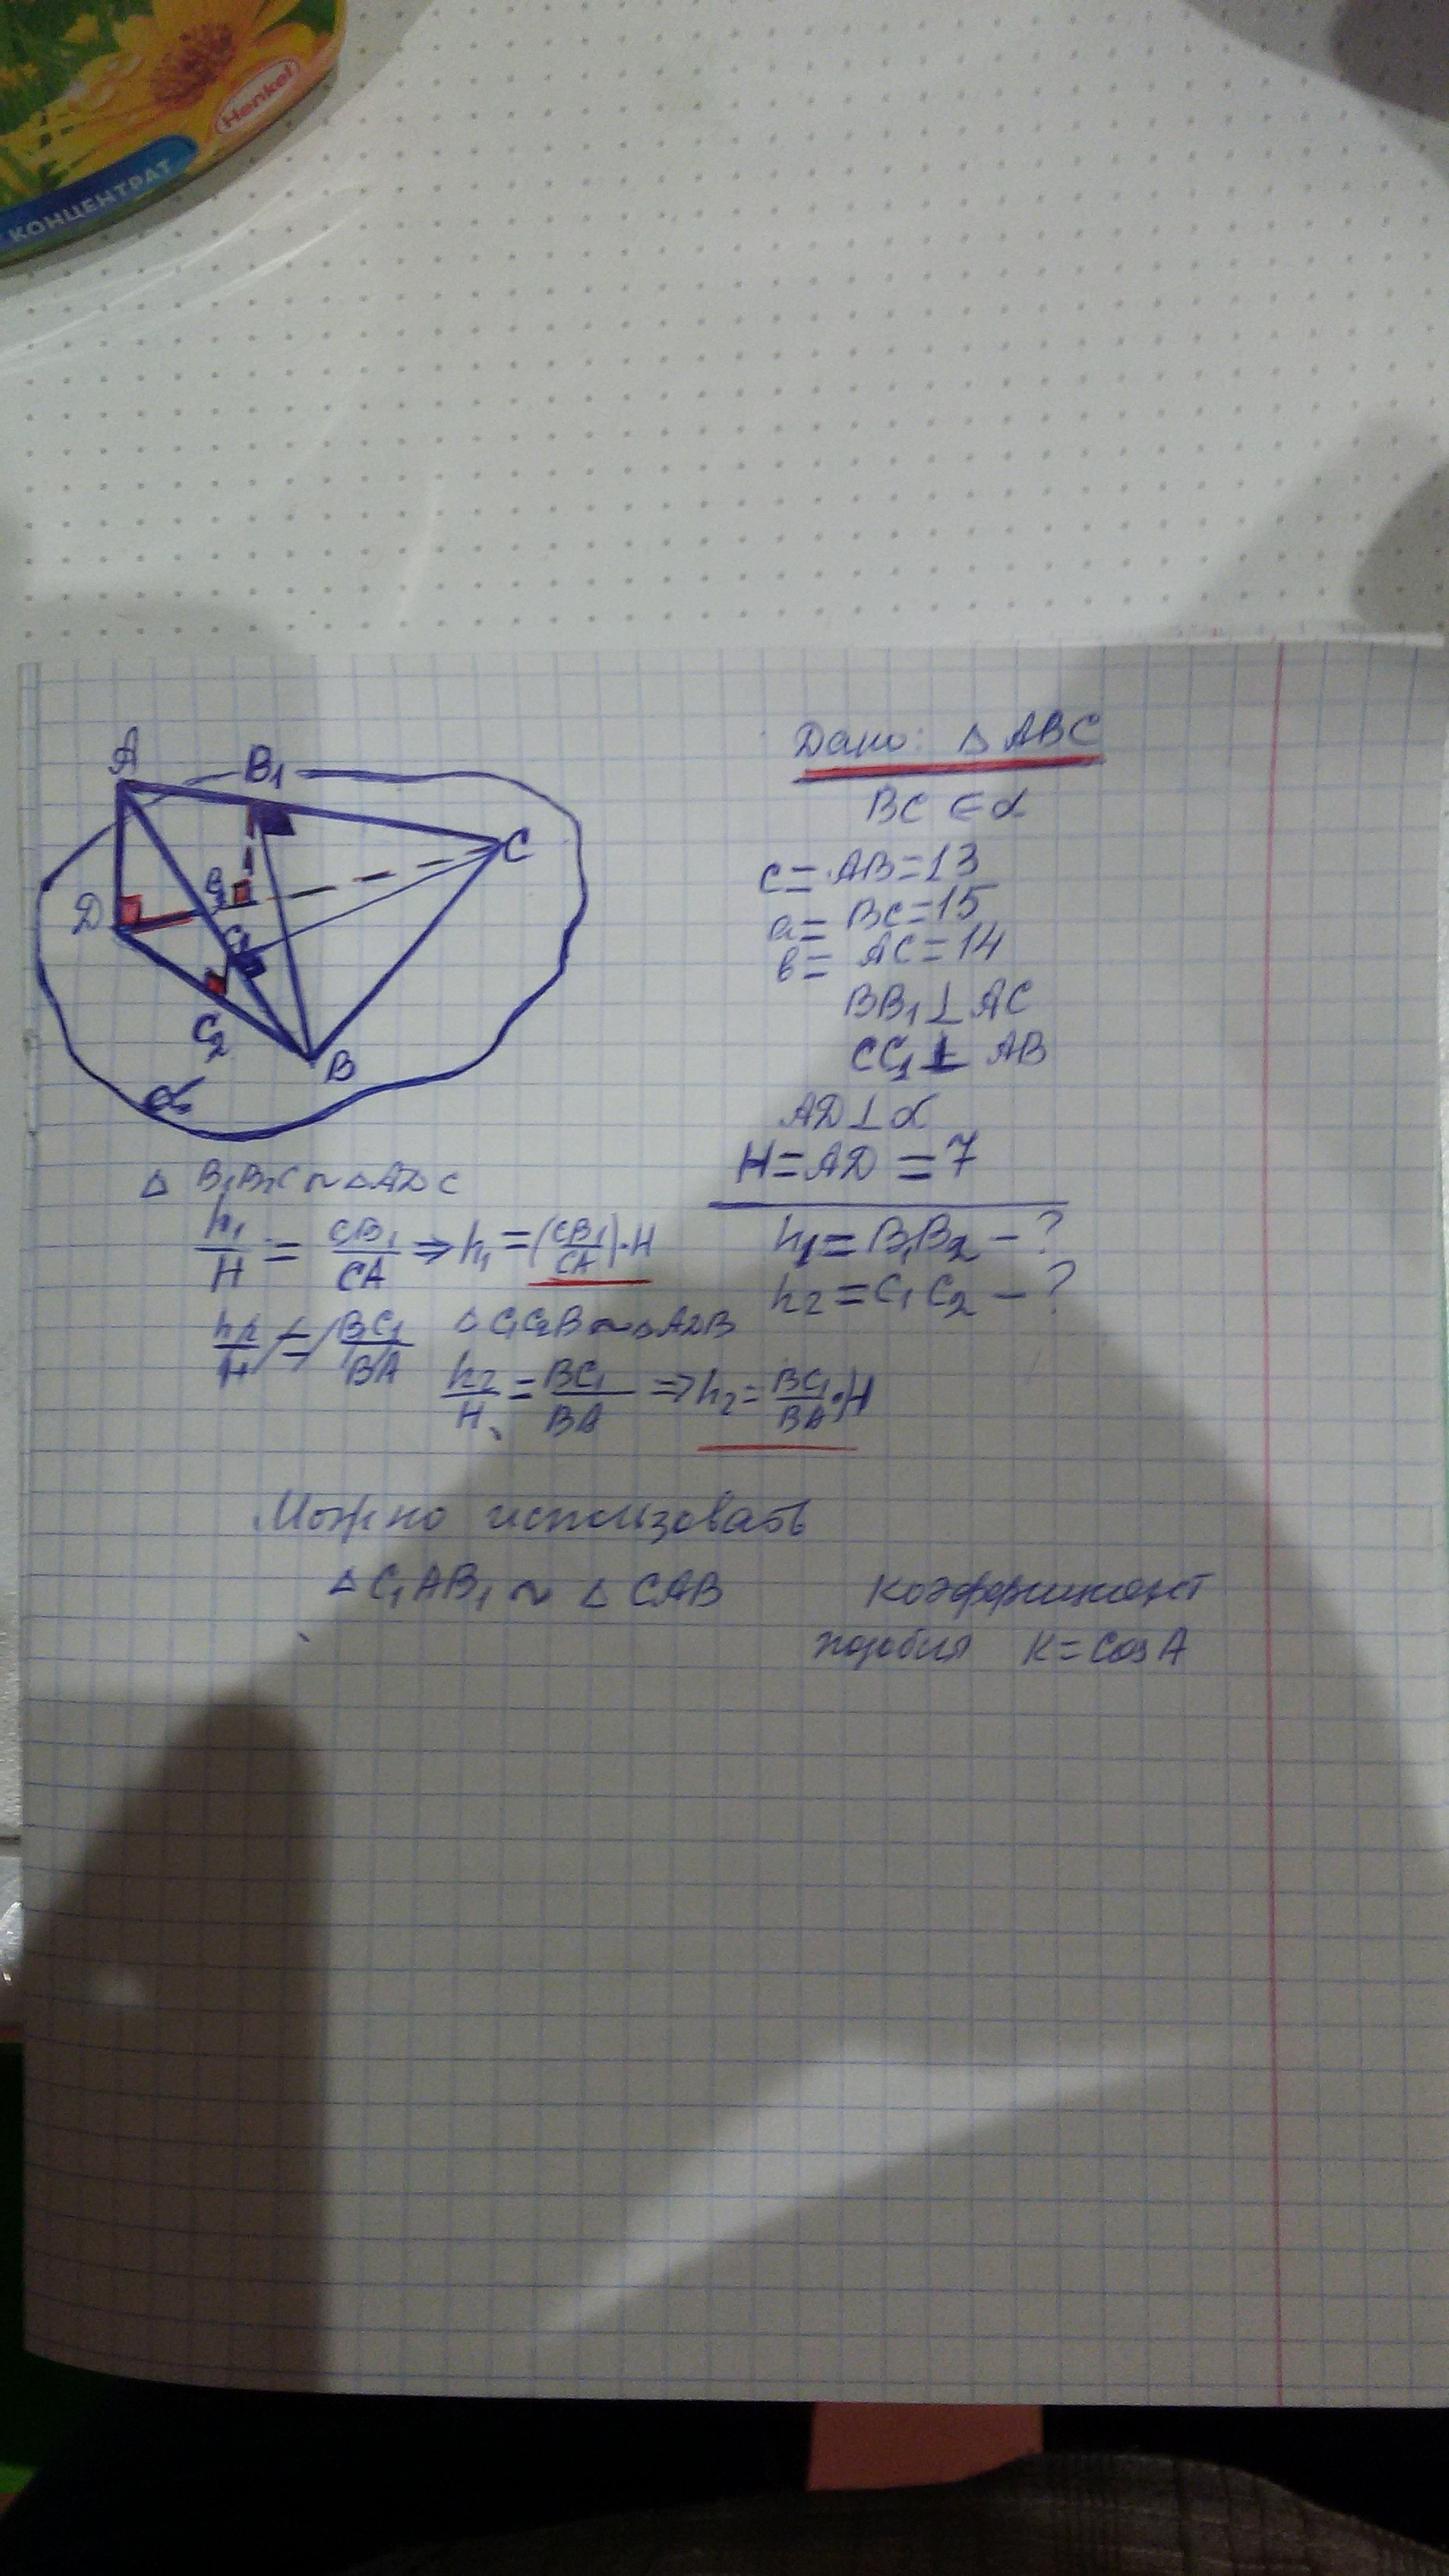 Henkel
КОНЦЕНТРАТ
Дано: △ ABC
BC ∈ α
c = AB = 13
a = BC = 15
b = AC = 14
BB₁ ⊥ AC
CC₁ ⊥ AB
AD ⊥ α
H = AD = 7
h₁ = B₁B₂ – ?
h₂ = C₁C₂ – ?
A
B₁
C
D
B₂
C₁
C₂
B
α
△ B₁B₂C ~ △ADC
h₁/H = CB₁/CA ⇒ h₁ = (CB₁/CA)·H
h₂/H = BC₁/BA △C₁C₂B ~ △ADB
h₂/H = BC₁/BA ⇒ h₂ = BC₁/BA·H
Можно использовать
△ C₁AB₁ ~ △ CAB коэффициент
подобия K = cos A